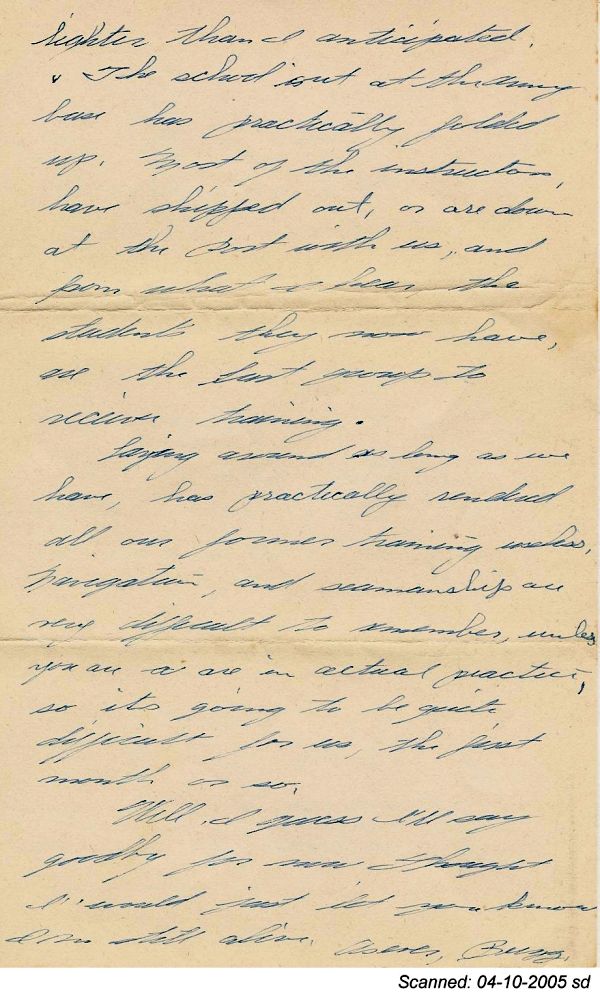 lighter than I anticipated.
The school out at the Army
base has practically folded
up. Most of the instructors,
have shipped out, or are down
at the Post with us, and
from what I hear, the
students they now have,
are the last group to
receive training.
Laying around as long as we
have, has practically rendered
all our former training useless,
Navigation, and seamanship are
very difficult to remember, unless
you are a are in actual practice,
so its going to be quite
difficult for us, the first
month or so.
Well, I guess I'll say
goodby for now thought
I would just let you know
I'm still alive. As ever,
Scanned: 04-10-2005 sd